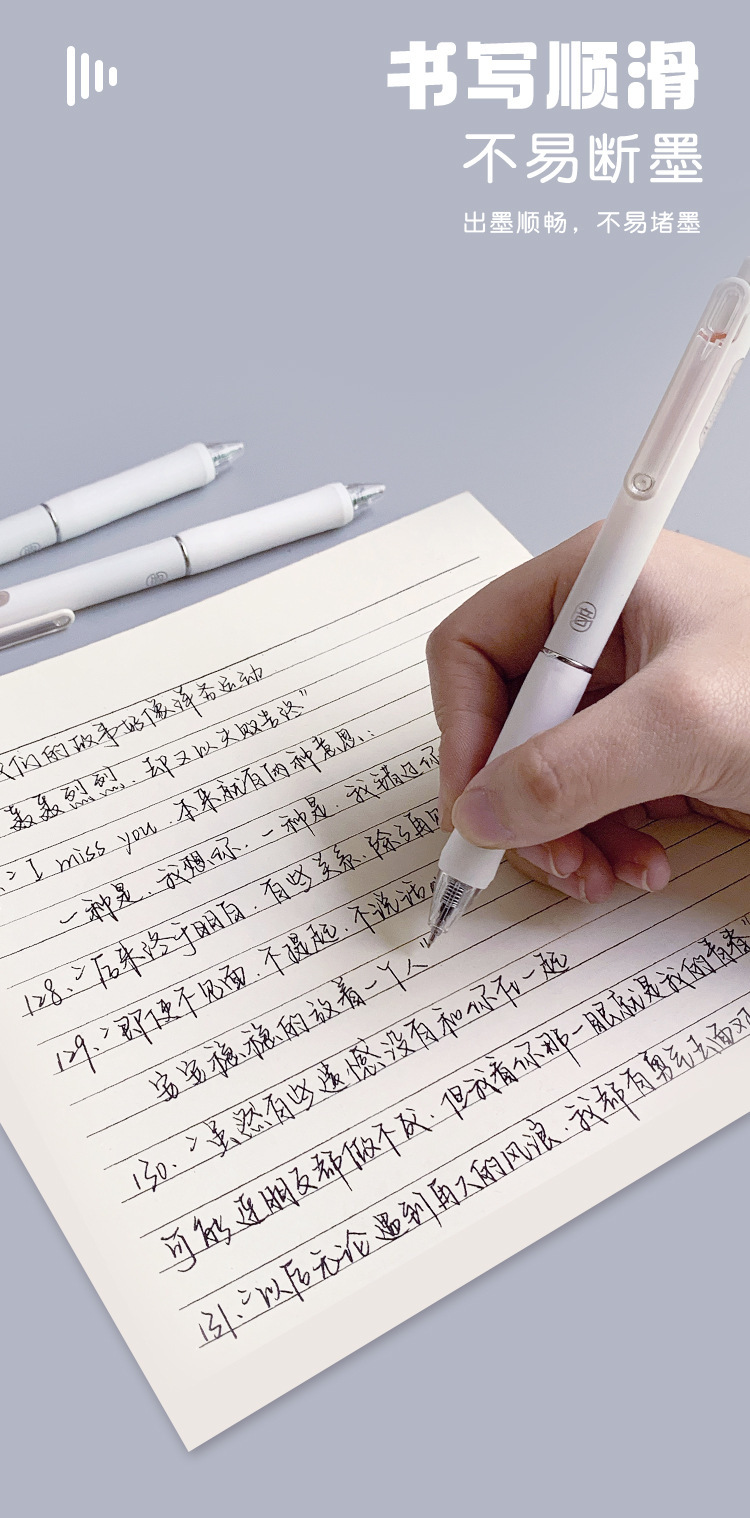 书写顺滑
不易断墨
出墨顺畅，不易堵墨
我们的故事好像译名运动
轰轰烈烈，却又以失败告终"
I miss you，本来就有两种意思：
一种是，我想你，一种是，我错过你
128、"后来终于明白，有些关系，除了再
129、"即使不见面，不提起，不说话
安安稳稳的放着一个人"
130、"虽然有些遗憾没有和你在一起
可能连朋友都做不成，但我看你那一眼就是我的青春"
131、"以后无论遇到再大的风浪，我都有勇气去面对